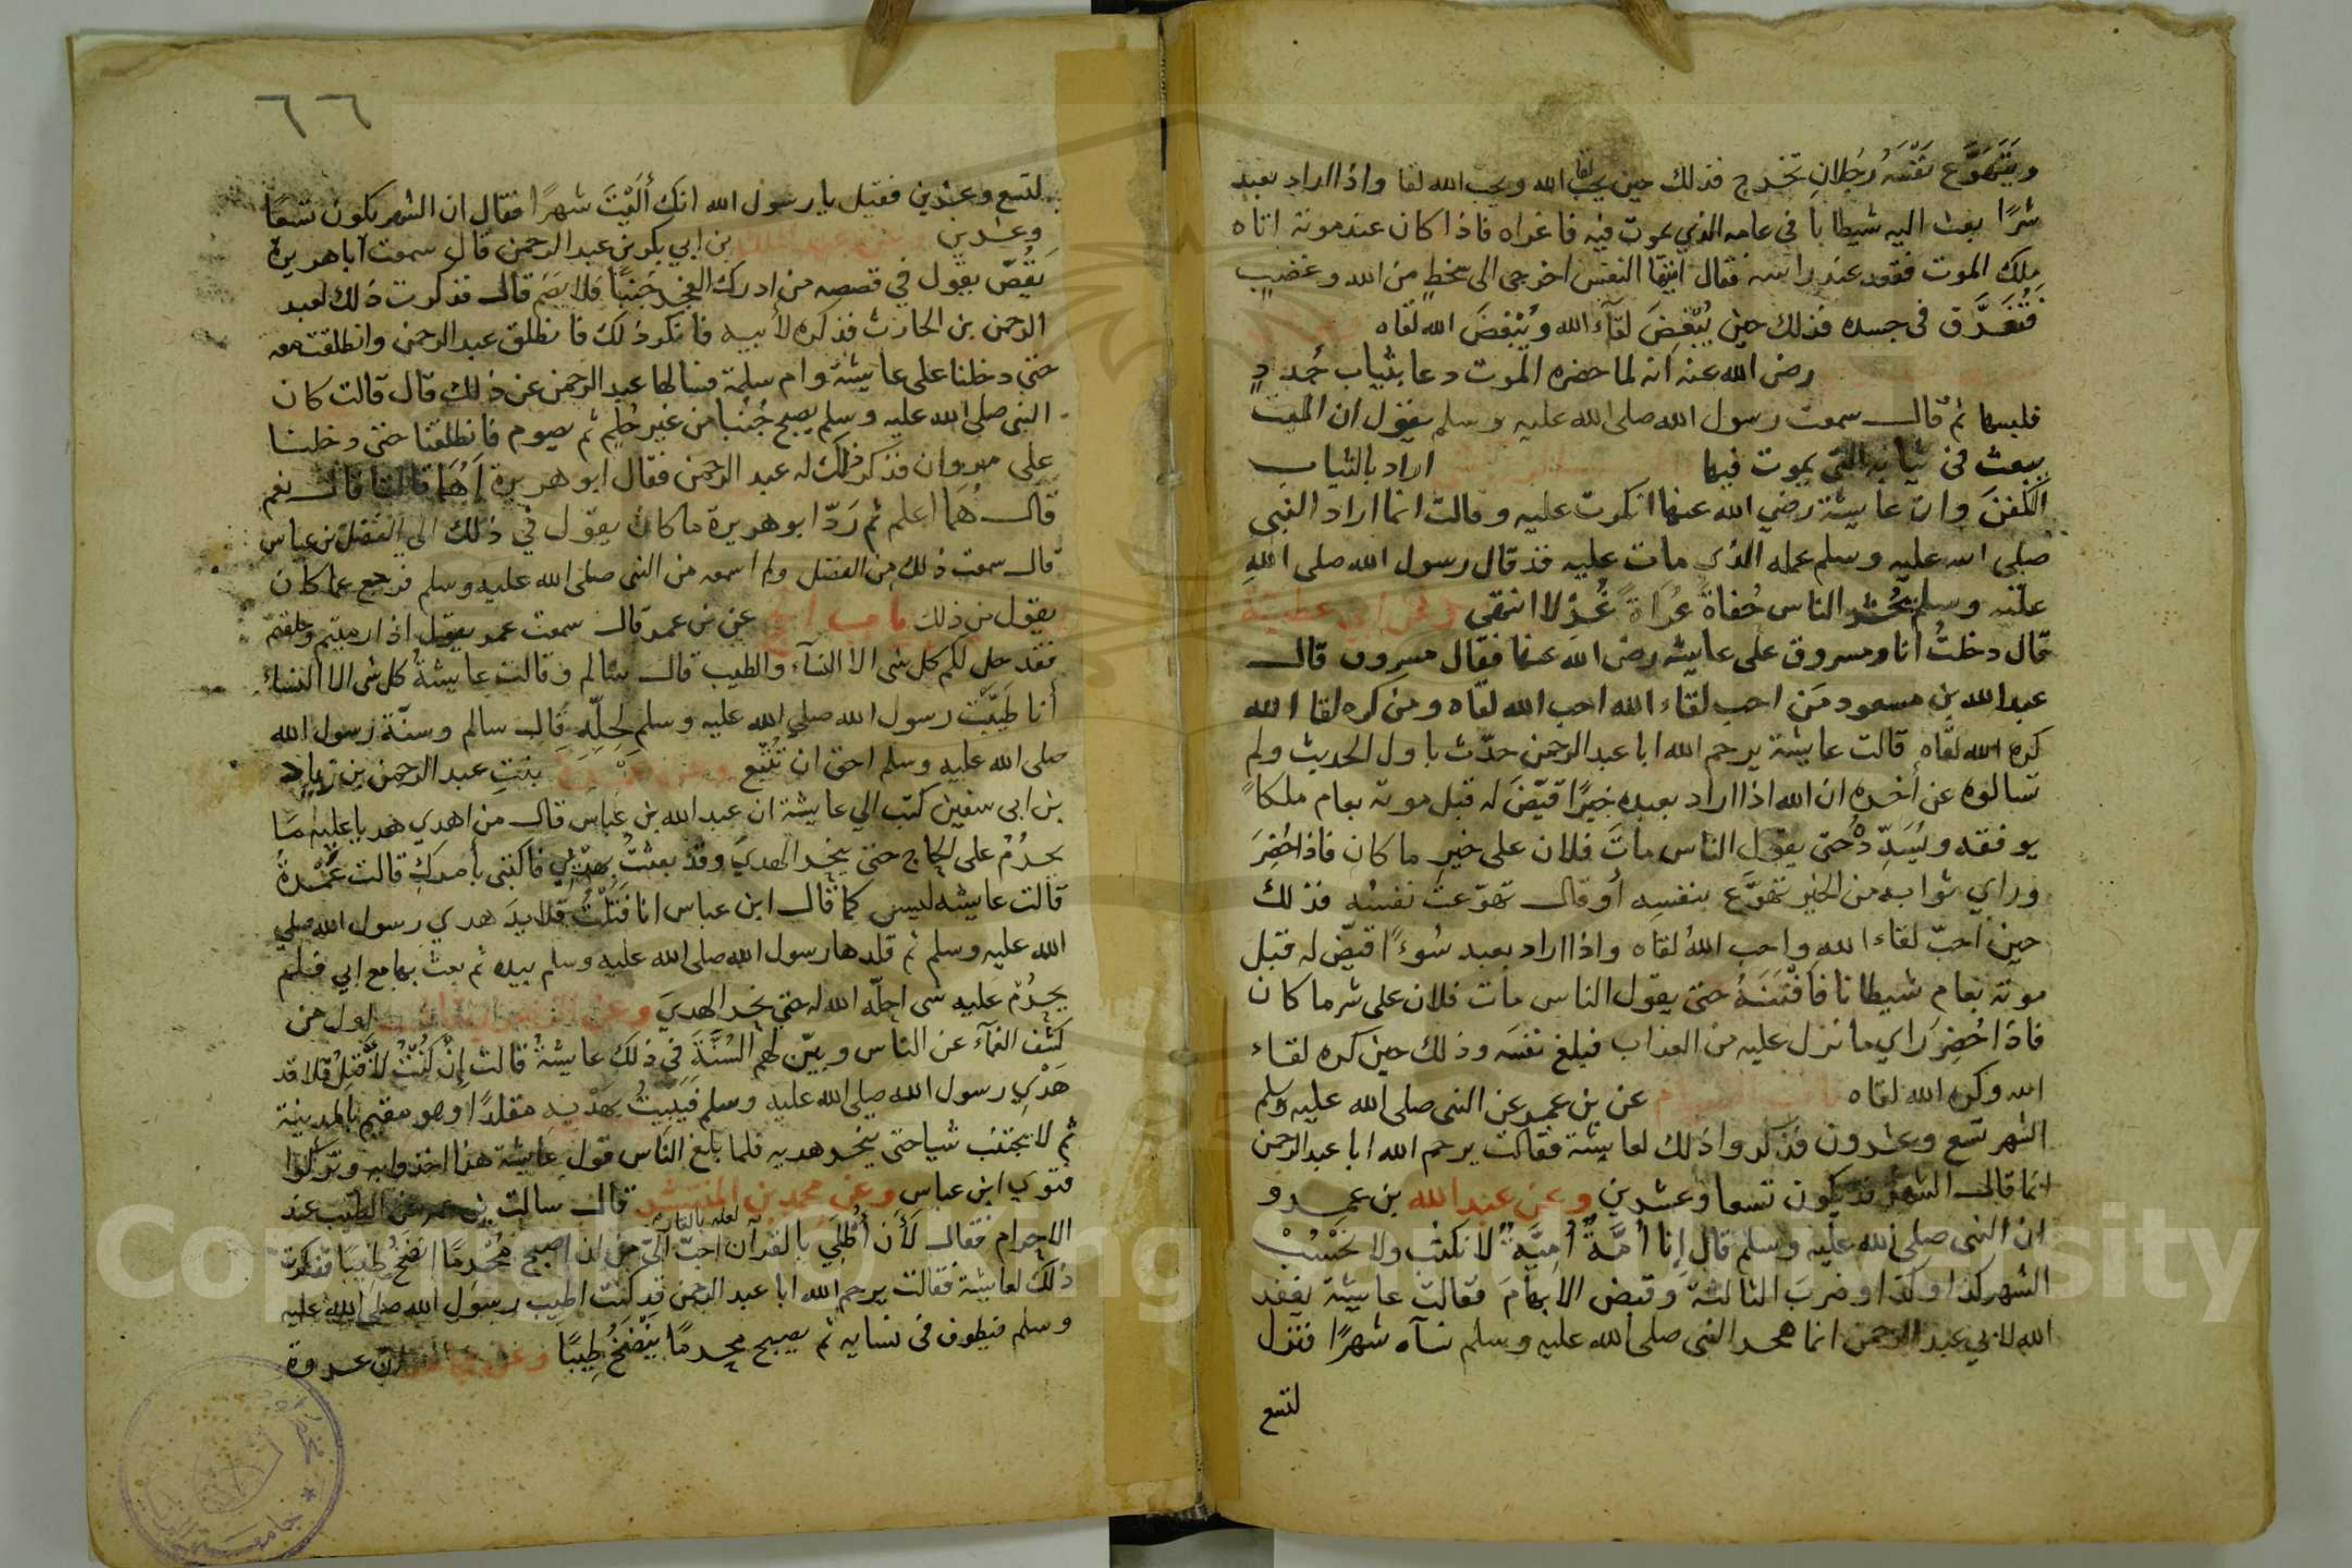 ويتهوع نفسه رجلان تخرج فذلك حين يحب لقا الله ويحب الله لقا واذا اراد بعبد
شرًا بعث اليه شيطانا في عامه الذي يموت فيه فاغراه فاذا كان عند موته اتاه
ملك الموت فقعد عند راسه فقال ايتها النفس اخرجي الى سخطٍ من الله وغضبٍ
فتفرَّق في جسده فذلك حين يُبْغِضَ لقآء الله ويُبْغِضَ الله لقاه
رضى الله عنه انه لما حضره الموت دعا بثياب جُددٍ
فلبسها ثم قال سمعت رسول الله صلى الله عليه وسلم يقول ان الميت
يبعث فى ثيابه التى يموت فيها اراد بالثياب
الكفنَ وان عايشة رضي الله عنها انكرت عليه وقالت انما اراد النبى
صلى الله عليه وسلم عمله الذي مات عليه قد قال رسول الله صلى اللهِ
عليه وسلم يُحشر الناس حُفاةً عُرَاةً غُرْلا انتهى وعن ابى عطية
قال دخلتُ انا ومسروق على عايشه رضى الله عنها فقال مسروق قال
عبد الله بن مسعود مَن احب لقاء الله احب الله لقاه ومن كره لقا الله
كره الله لقاه قالت عايشة يرحم الله ابا عبد الرحمن حدّث باول الحديث ولم
تسالوه عن أخره ان الله اذا اراد بعبده خيرًا قيّضَ له قبل موته بعام ملكاً
يوفقه ويُسَدِّدُه حتى يقول الناس ماتَ فلان على خيرِ ما كان فاذا حُضِرَ
وراي ثوابه من الخير تهوَّع بنفسِه أو قال تهوّعت نفسُه فذلك
حين احبّ لقاء الله واحب اللهُ لقاه واذا اراد بعبد سُوءًا قيّض له قبل
موته بعام شيطانا فافْتَنَهُ حتى يقول الناس مات فلان على شر ما كان
فاذا حُضِرَ راي ما نزل عليه من العذاب فبلغ نفسَه وذلك حين كره لقاء
الله وكره الله لقاه عن بن عمر عن النبى صلى الله عليه وسلم
الشهر تسع وعشرون فذكروا ذلك لعايشة فقالت يرحم الله ابا عبد الرحمن
انما قال الشهر قد يكون تسعا وعشرين وعن عبد الله بن عمرو
ان النبى صلى الله عليه وسلم قال إنا أُمَّةٌ أُمِيَّةٌ لا نكتُب ولا نَحْسُبْ
الشهر كذا وكذا وضربَ الثالثة وقبض الابهامَ فقالت عايشة يغفر
الله لابي عبد الرحمن انما هجر النبى صلى الله عليه وسلم نسآه شهرًا فنزل
لتسع
٦٦
لتسع وعشرين فقيل يا رسول الله انك أليْتَ شهرًا فقال ان الشهر يكون تسعًا
وعشرين وعن عبد الملك بن ابي بكر بن عبد الرحمن قال سمعت ابا هريرة
يَقُصّ يقول في قصصه من ادركه الفجر جُنبًا فلا يصُم قال فذكرت ذلك لعبد
الرحمن بن الحارث فذكره لأبيه فانكر ذلك فانطلق عبد الرحمن وانطلقت معه
حتى دخلنا على عايشة وام سلمة فسالها عبد الرحمن عن ذلك قال قالت كان
النبى صلى الله عليه وسلم يصبح جُنُبا من غير حُلُمٍ ثم يصوم فانطلقنا حتى دخلنا
على مروان فذكر ذلك له عبد الرحمن فقال ابو هريرة أهُمَا قالتا قال نعم
قال هُمَا اعلم ثم رَدّ ابو هريرة ما كان يقول في ذلك الى الفضل بن عباس
قال سمعت ذلك من الفضل ولم اسمعه من النبى صلى الله عليه وسلم فرجع عما كان
يقول من ذلك باب الحج عن بن عمر قال سمعت عمر يقول اذا رميتم وحلقتم
فقد حل لكم كل شى الا النسآء والطيب قال سالم وقالت عايشةُ كل شى الا النساء
أنا طيَّبْت رسول الله صلى الله عليه وسلم لِحِلِّهِ قال سالم وسنّة رسول الله
صلى الله عليه وسلم احق ان تُتّبع وعن عمرة بنتِ عبد الرحمن بن زياد
بن ابى سفين كتب الي عايشة ان عبد الله بن عباس قال من اهدي هديا عليه ما
يحرُمُ على الحاج حتى ينحر الهديَ وقد بعثتُ بهديي فاكتبى بأمركِ قالت عَمْرةُ
قالت عايشه ليس كما قال ابن عباس انا فتلْتُ قلايدَ هدي رسول الله صلى
الله عليه وسلم ثم قلدها رسول الله صلى الله عليه وسلم بيده ثم بعث بها مع ابي فلم
يحرُمْ عليه شى احلّه الله له حتى نحر الهديَ وعن الزهرى اول من
كشف الغمآء عن الناس وبيّن لهم السُنّةَ في ذلك عايشةُ قالت إِنْ كُنْتُ لأفتِلُ قلايد
هَدْي رسول الله صلى الله عليه وسلم فَيَبِيتُ بهَدْيهِ مقلدًا وهو مقيم بالمدينة
ثم لا يجتنب شيا حتى ينحر هديه فلما بلغ الناس قول عايشة هذا اخذوا به وتركوا
فتوي ابن عباس وعن محمد بن المنتشر قال سالت بن عمر عن الطيب عند
لعله بالقار
الاحرام فقال لَأَن أطَّلِيَ بالقرآن احبّ الىّ من ان اصبح مُحْرِمًا انضخُ طيبًا فذكرت
ذلك لعايشة فقالت يرحم الله ابا عبد الرحمن قد كنت اطيب رسول الله صلى الله عليه
وسلم فيطوف فى نسايه ثم يصبح محرمًا يَنْضَخُ طِيبًا